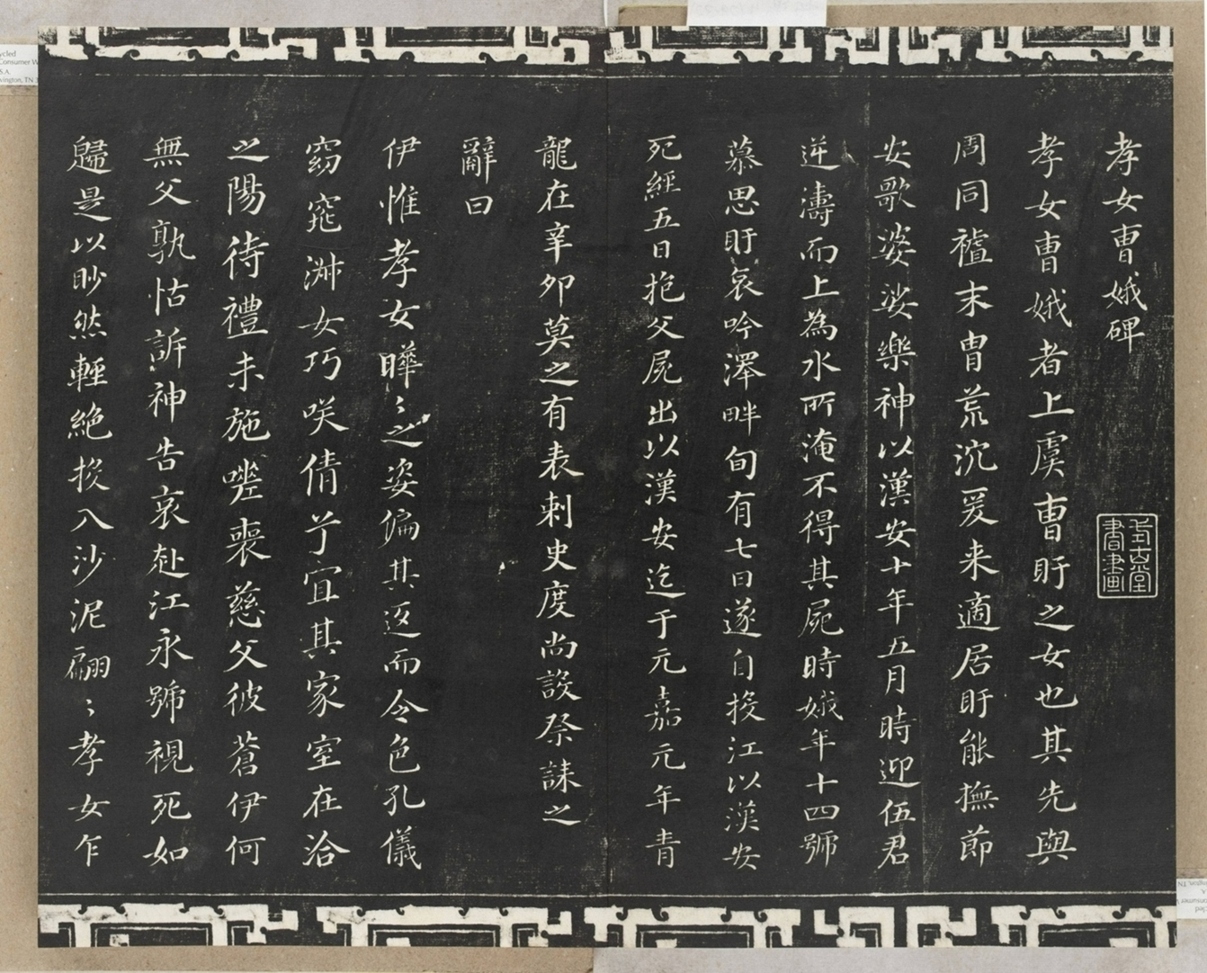 孝女曹娥碑
孝女曹娥者上虞曹盱之女也其先與
周同祖末胄荒沉爰来適居盱能撫節
安歌婆娑樂神以漢安十年五月時迎伍君
逆濤而上為水所淹不得其屍時娥年十四號
慕思盱哀吟澤畔旬有七日遂自投江以漢安
死經五日抱父屍出以漢安迄于元嘉元年青
龍在辛卯莫之有表刺史度尚設祭誄之
辭曰
伊惟孝女曄〻之姿偏其返而令色孔儀
窈窕淑女巧咲倩兮宜其家室在洽
之陽待禮未施嗟喪慈父彼蒼伊何
無父孰怙訴神告哀赴江永號視死如
歸是以眇然輕絶投入沙泥翩〻孝女乍
ycled
Consumer W
S.A.
wington, TN 3